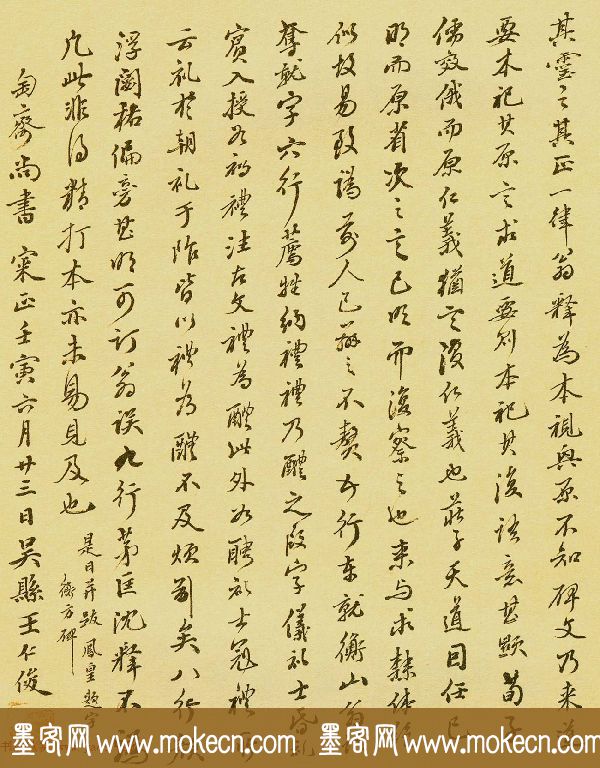 其靈之其正一律翁釋為本視與原不知碑文乃来
要本祀其原言求道要則本祀其後語意甚顯荀子
儒效俄而原仁義猶言復仁義也莊子天道曰任已
明而原省次之言已明而復察之也来与求隸体
似故易致譌前人已辨之不贅五行東就衡山
奪就字六行薦牲納禮禮乃醴之段字儀礼士昏礼
賓入授如初禮注古文禮為醴此外如聘礼士冠禮
云礼於朝礼于阼皆以禮為醴不及煩引矣八行
浮圖格偏旁甚明可訂翁誤九行茅匡沈釋不
凡此非得精打本亦未易見及也
是日并跋鳳皇題字
衡方碑
匋齋尚書 寀正 壬寅六月廿三日吳縣王仁俊
墨客网 www.mokecn.com 墨客网 www.mokecn.com